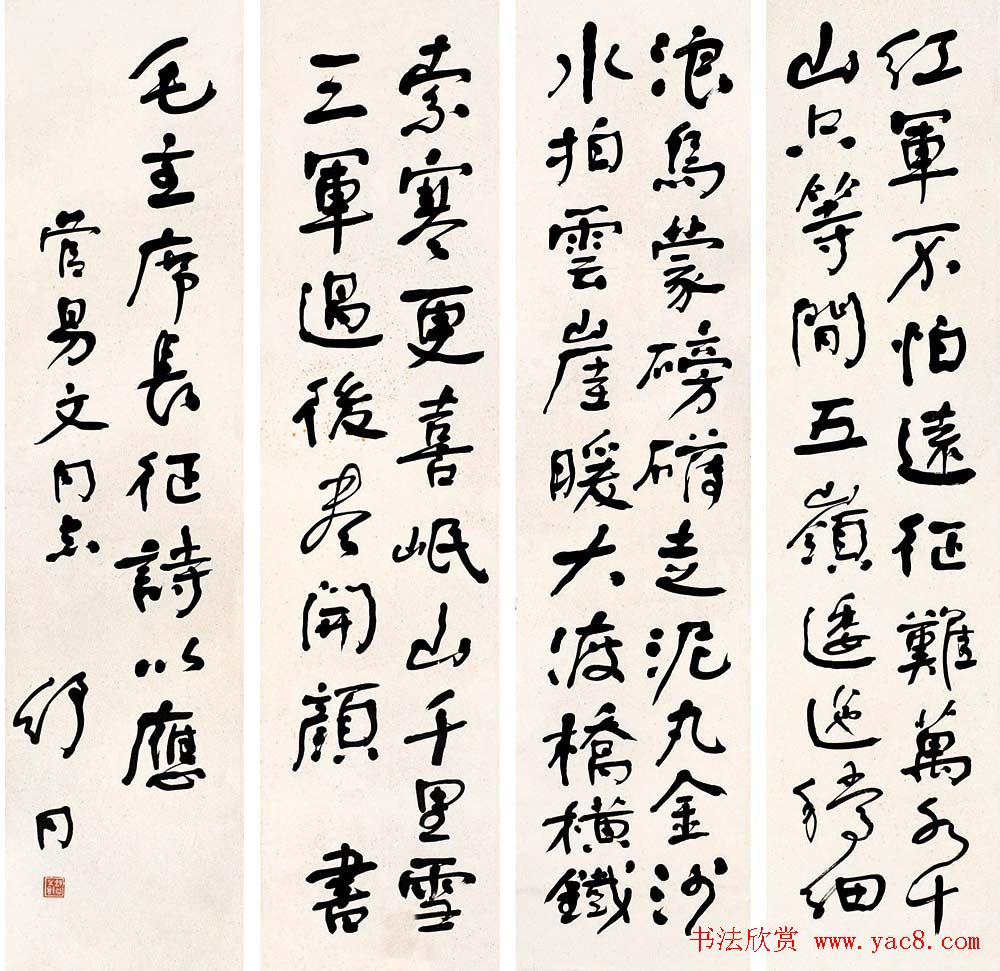 紅軍不怕遠征難萬水千
山只等閒五嶺逶迤騰細
浪烏蒙磅礴走泥丸金沙
水拍雲崖暖大渡橋橫鐵
索寒更喜岷山千里雪
三軍過後盡開顏 書
毛主席長征詩以應
管易文同志 舒同
书法欣赏 www.yac8.com